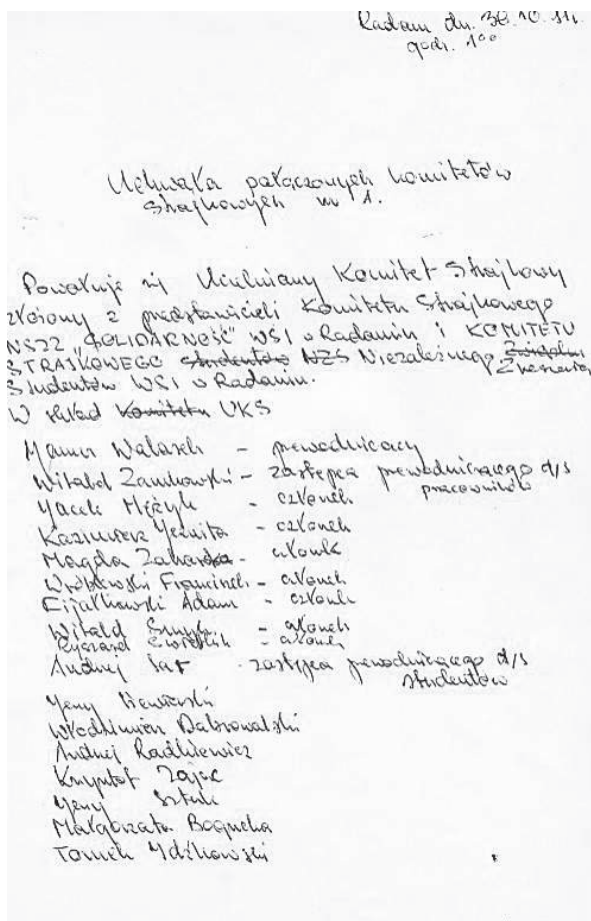 Radom dn. 30.10.81r.
godz. 1⁰⁰
Uchwała połączonych komitetów
strajkowych nr 1.
Powołuje się Uczelniany Komitet Strajkowy
złożony z przedstawicieli Komitetu Strajkowego
NSZZ "SOLIDARNOŚĆ" WSI w Radomiu i KOMITETU
STRAJKOWEGO studentów NZS Niezależnego Zrzeszenia
Studentów WSI w Radomiu.
W skład Komitetu UKS
Mamer Walasek - przewodniczący
Witold Zamkowski - zastępca przewodniczącego d/s
pracowników
Jacek Mężyk - członek
Kazimierz - członek
Magda - członk
Wróblewski Franciszek - członek
Fijałkowski Adam - członek
Witold - członek
Ryszard - członek
Andrzej - zastępca przewodniczącego d/s
studentów
Jerzy
Włodzimierz Dabrowalski
Andrzej Radkiewicz
Krzysztof Zając
Jerzy Sztuk
Małgorzata Bogucka
Tomek Idzikowski